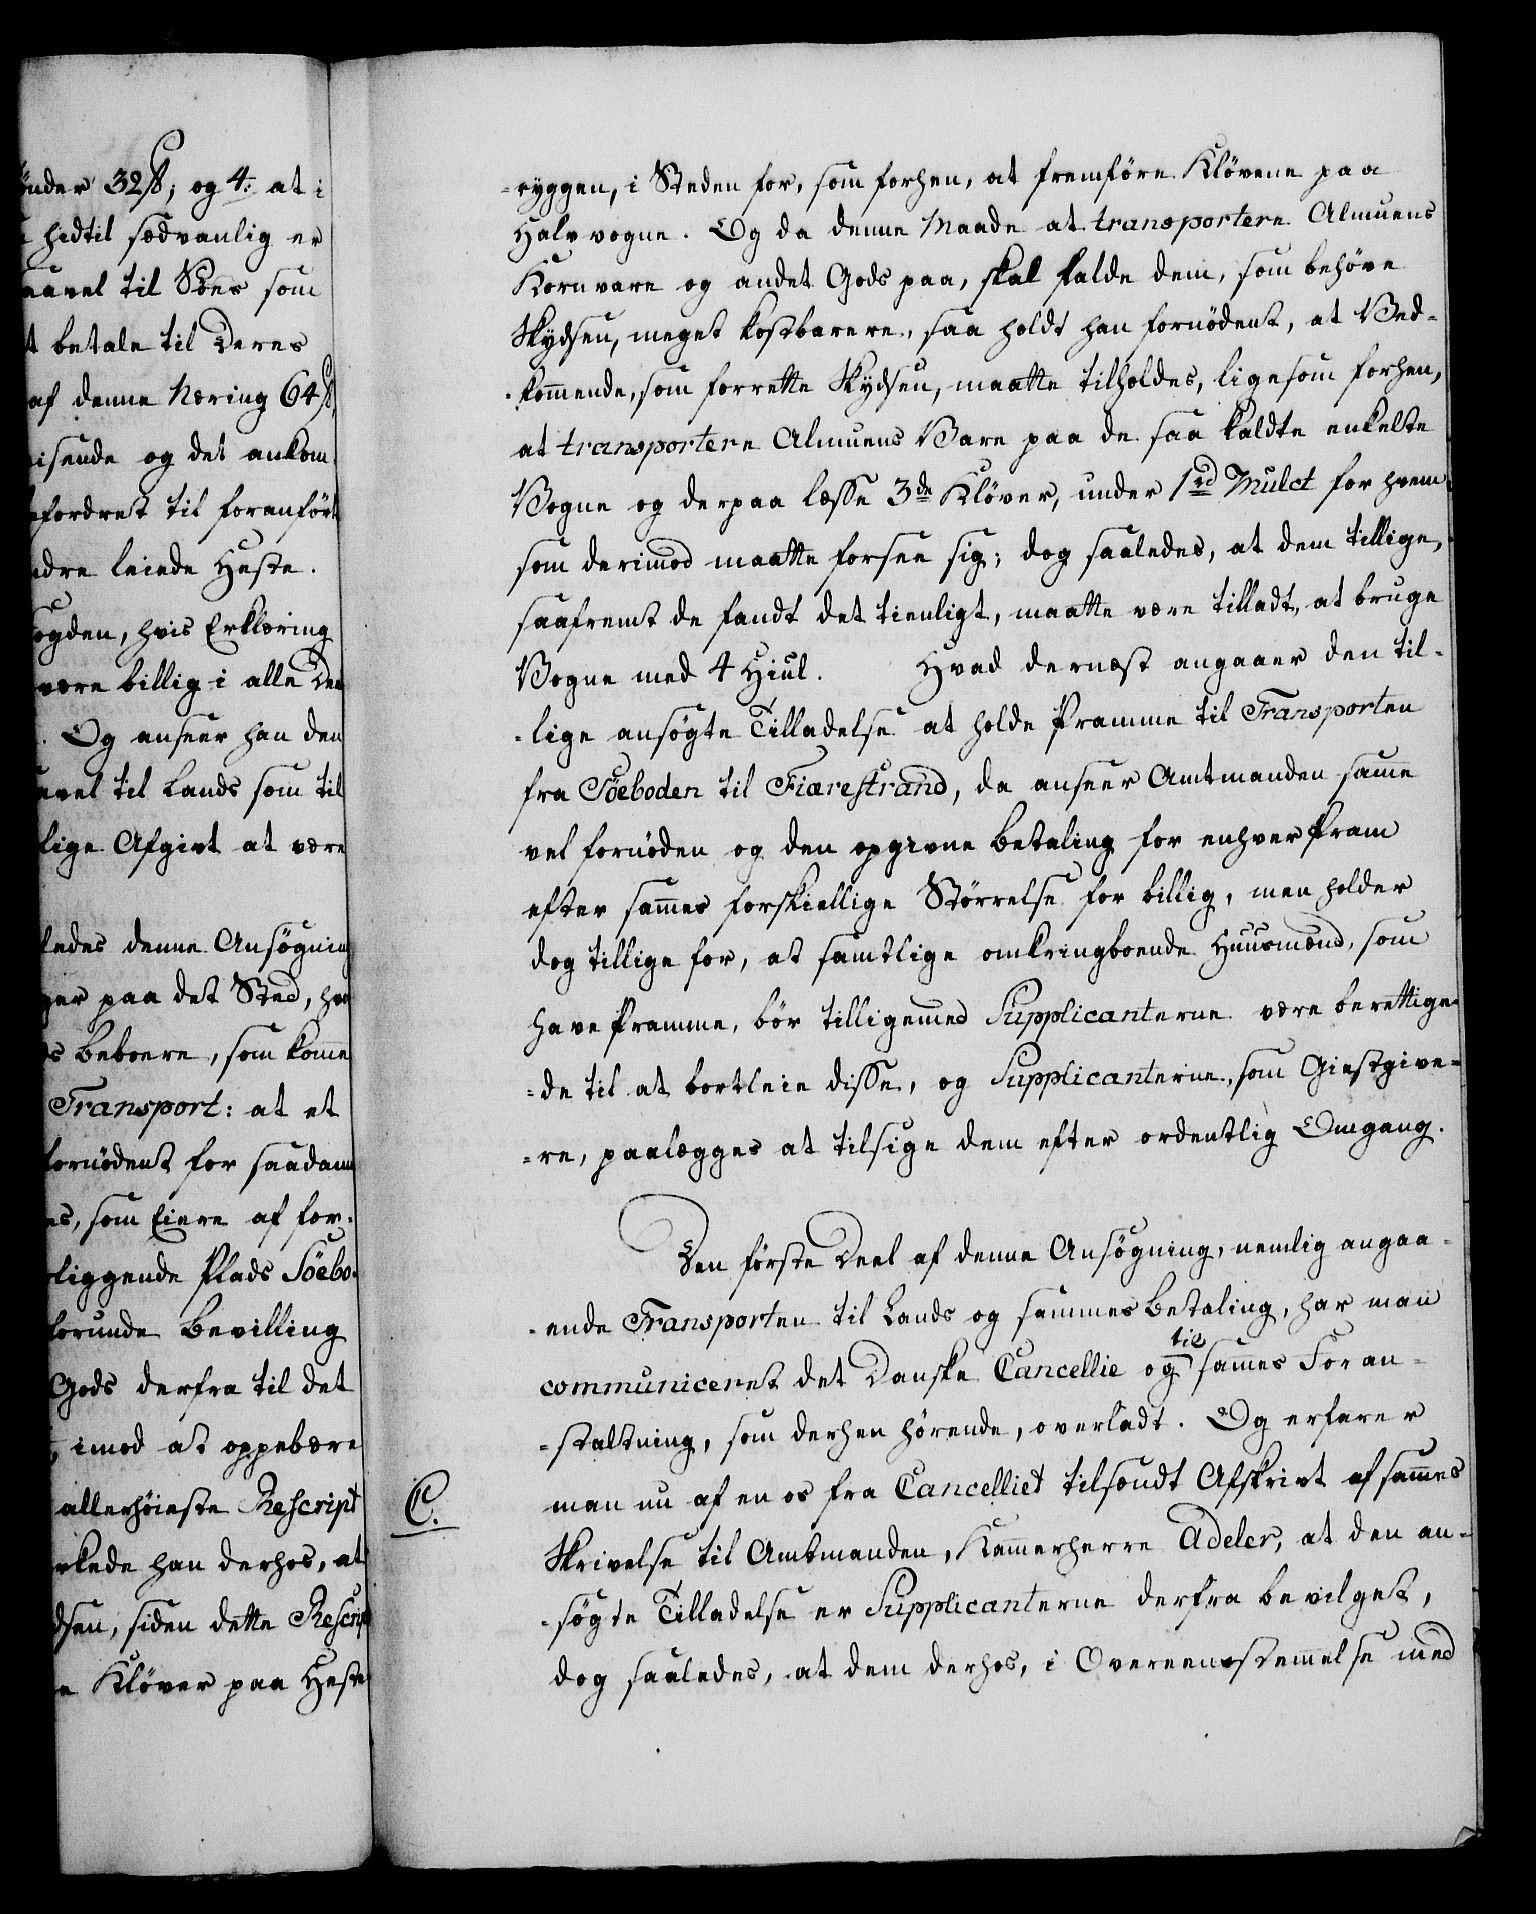 ønder 32 ß; og 4: at i
hidtil sædvanlig er
saavel til Söes som
at betale til Deres
af denne Næring 64 ß,
reisende og det ankom
affordret til foranført
andre leiede Heste.
fogden, hvis Erklæring
være billig i alle De
. Og anseer han den
saavel til Lands som til
lige Afgivt at være
ledes denne Ansøgning
ger paa det Sted, hvo
s Beboere, som komme
Transport: at et
fornødent for saadann
es, som Eiere af for-
liggende Plads Söebo-
forunde Bevilling
Gods derfra til det
, imod at oppebære
allerhöieste Rescript
rkede han derhos, at
dsen, siden dette Rescript
e Kløver paa Heste
-ryggen, i Steden for, som forhen, at fremföre Klövene paa
Halvvogne. Og da denne Maade at transportere Almuens
Kornvare og andet Gods paa, skal falde dem, som behöve
Skydsen, meget kostbarere, saa holdt han fornödent, at Ved-
-kommende, som forrette Skydsen, maatte tilholdes, ligesom forhen,
at transportere Almuens Vare paa de saa kaldte enkelte
Vogne og derpaa læsse 3de Klöver, under 1 rd Mulct for hvem
som derimod maatte forsee sig; dog saaledes, at dem tillige,
saafremt de fandt det tienligt, maatte være tilladt, at bruge
Vogne med 4 Hiul. Hvad dernæst angaaer den til-
-lige ansögte Tilladelse at holde Pramme til Transporten
fra Söeboden til Fiærestrand, da anseer Amtmanden samme
vel fornöden og den opgivne Betaling for enhver Pram
efter sammes forskiellige Störrelse for billig, men holder
dog tillige for, at samtlige omkringboende Huusmænd, som
have Pramme, bör tilligemed Supplicanterne være berettige-
-de til at bortleie disse, og Supplicanterne, som Giestgive-
-re, paalægges at tilsige dem efter ordentlig Omgang.
Den förste Deel af denne Ansögning, nemlig angaa-
-ende Transporten til Lands og sammes Betaling, har man
communiceret det Danske Cancellie og til sammes Foran-
-staltning, som derhen hörende, overladt. Og erfarer
C.
man nu af en os fra Cancelliet tilsendt Afskrivt af sammes
Skrivelse til Amtmanden, Kammerherre Adeler, at den an-
-sögte Tilladelse er Supplicanterne derfra bevilget,
dog saaledes, at dem derhos, i Overeensstemmelse med